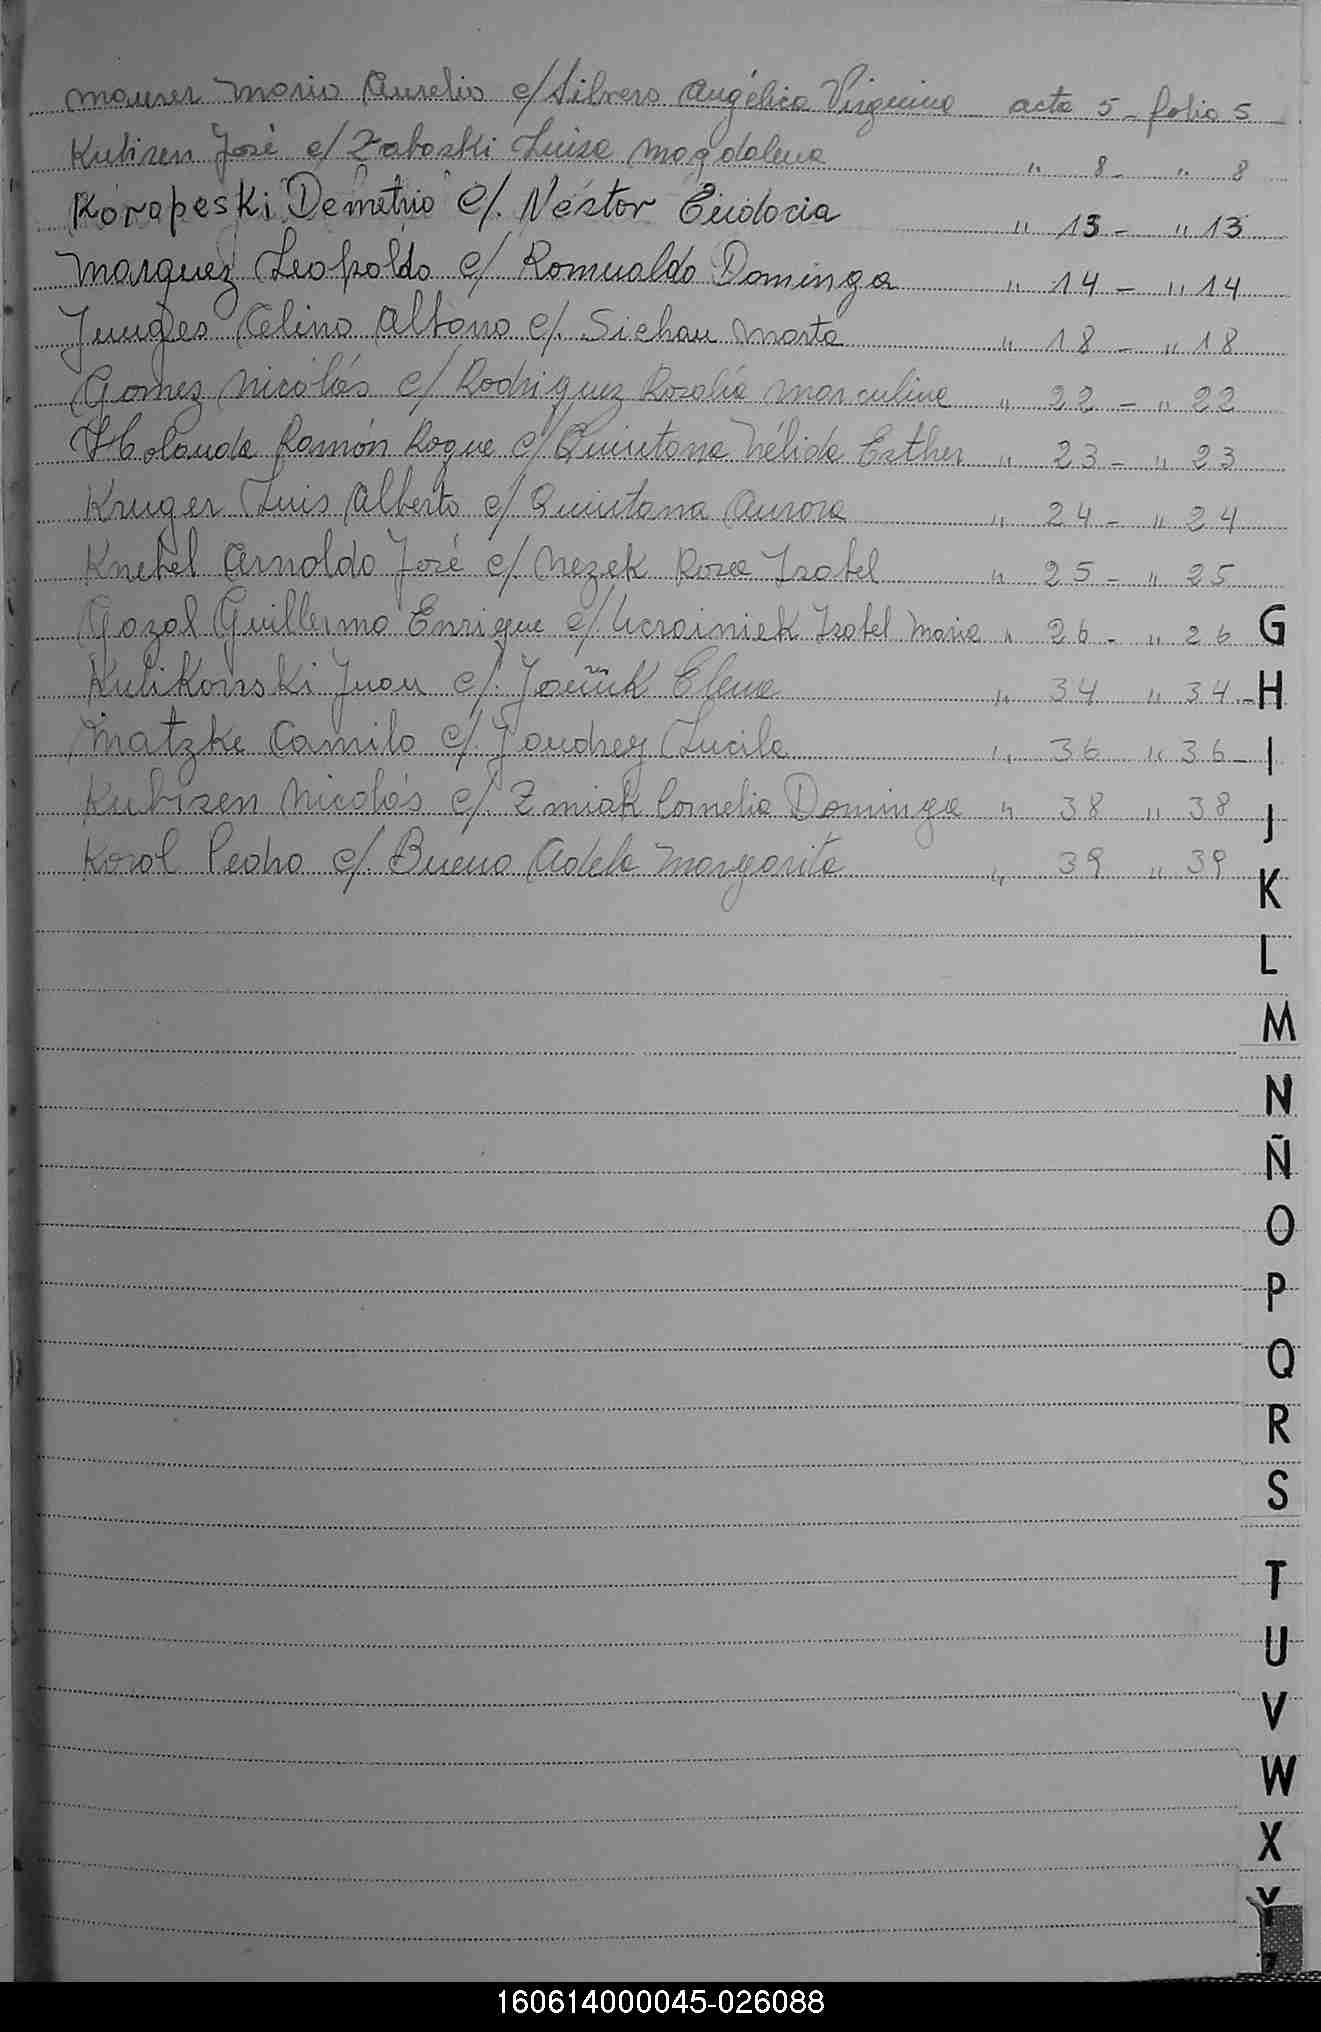 Mauser Mario Aurelio c/ Silvero Angélica Virginina acta 5 - folio 5
Kubisen José c/ Zaboski Luisa Magdalena " 8 - " 8
Korapeski Demetrio c/. Néstor Eudocia " 13 - " 13
Marquez Leopoldo c/ Romualdo Dominga " 14 - " 14
Junges Celino Albano c/. Sichau Marta " 18 - " 18
Gomez Nicolás c/ Rodriguez Rosalía Marculina " 22 - " 22
Holanda Ramón Roque c/ Quintana Nélida Esther " 23 - " 23
Kruger Luis Alberto c/ Quintana Aurora " 24 - " 24
Knebel Arnoldo José c/ Nezek Rosa Isabel " 25 - " 25
Gazal Guillermo Enrique c/ Ucrainiek Isabel Maria " 26 - " 26
Kulikonski Juan c/. Elena " 34 " 34 -
Matzke Camilo c/. Jaudrey Lucila " 36 " 36 -
Kubisen Nicolás c/. Zmiak Cornelia Dominga " 38 " 38
Korol Pedro c/. Bueno Adela Margarita " 39 " 39
G
H
I
J
K
L
M
N
Ñ
O
P
Q
R
S
T
U
V
W
X
Y
160614000045-026088